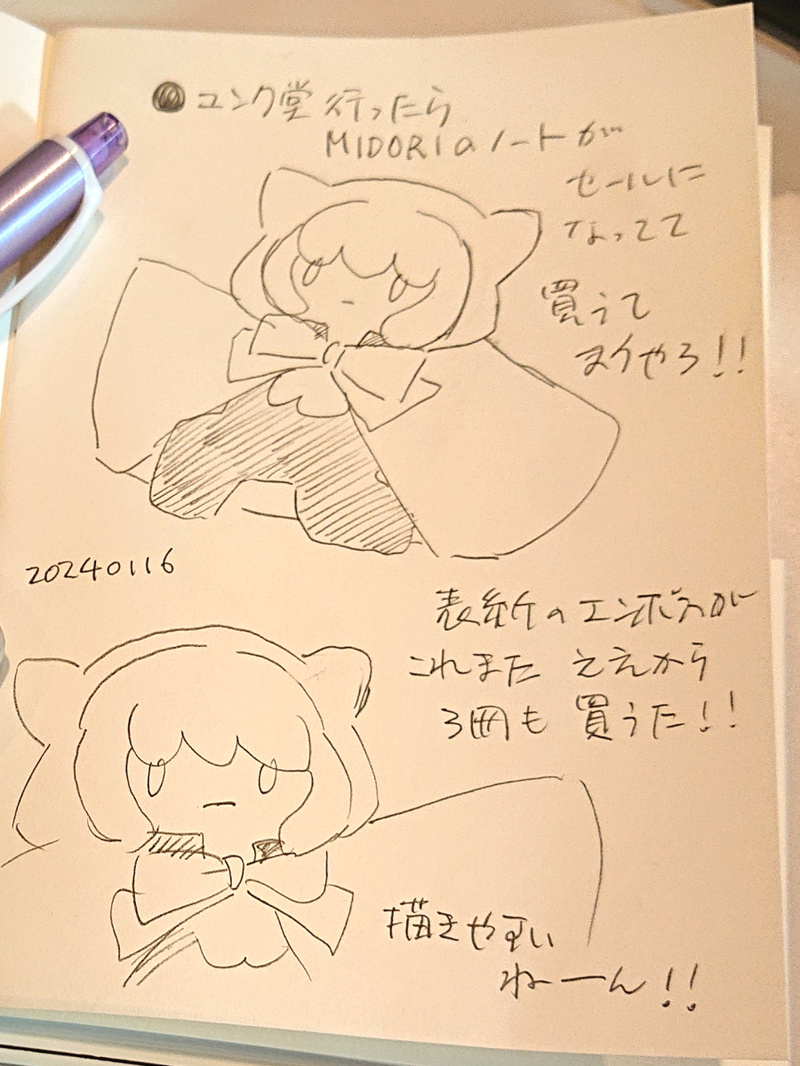 ●ユンク堂 行ったら
MIDORIのノートが
セールに
なってて
買うて
まうやろ!!
20240116
表紙のエンボスが
これまた ええから
3冊も 買うた!!
描きやすい
ねーん!!